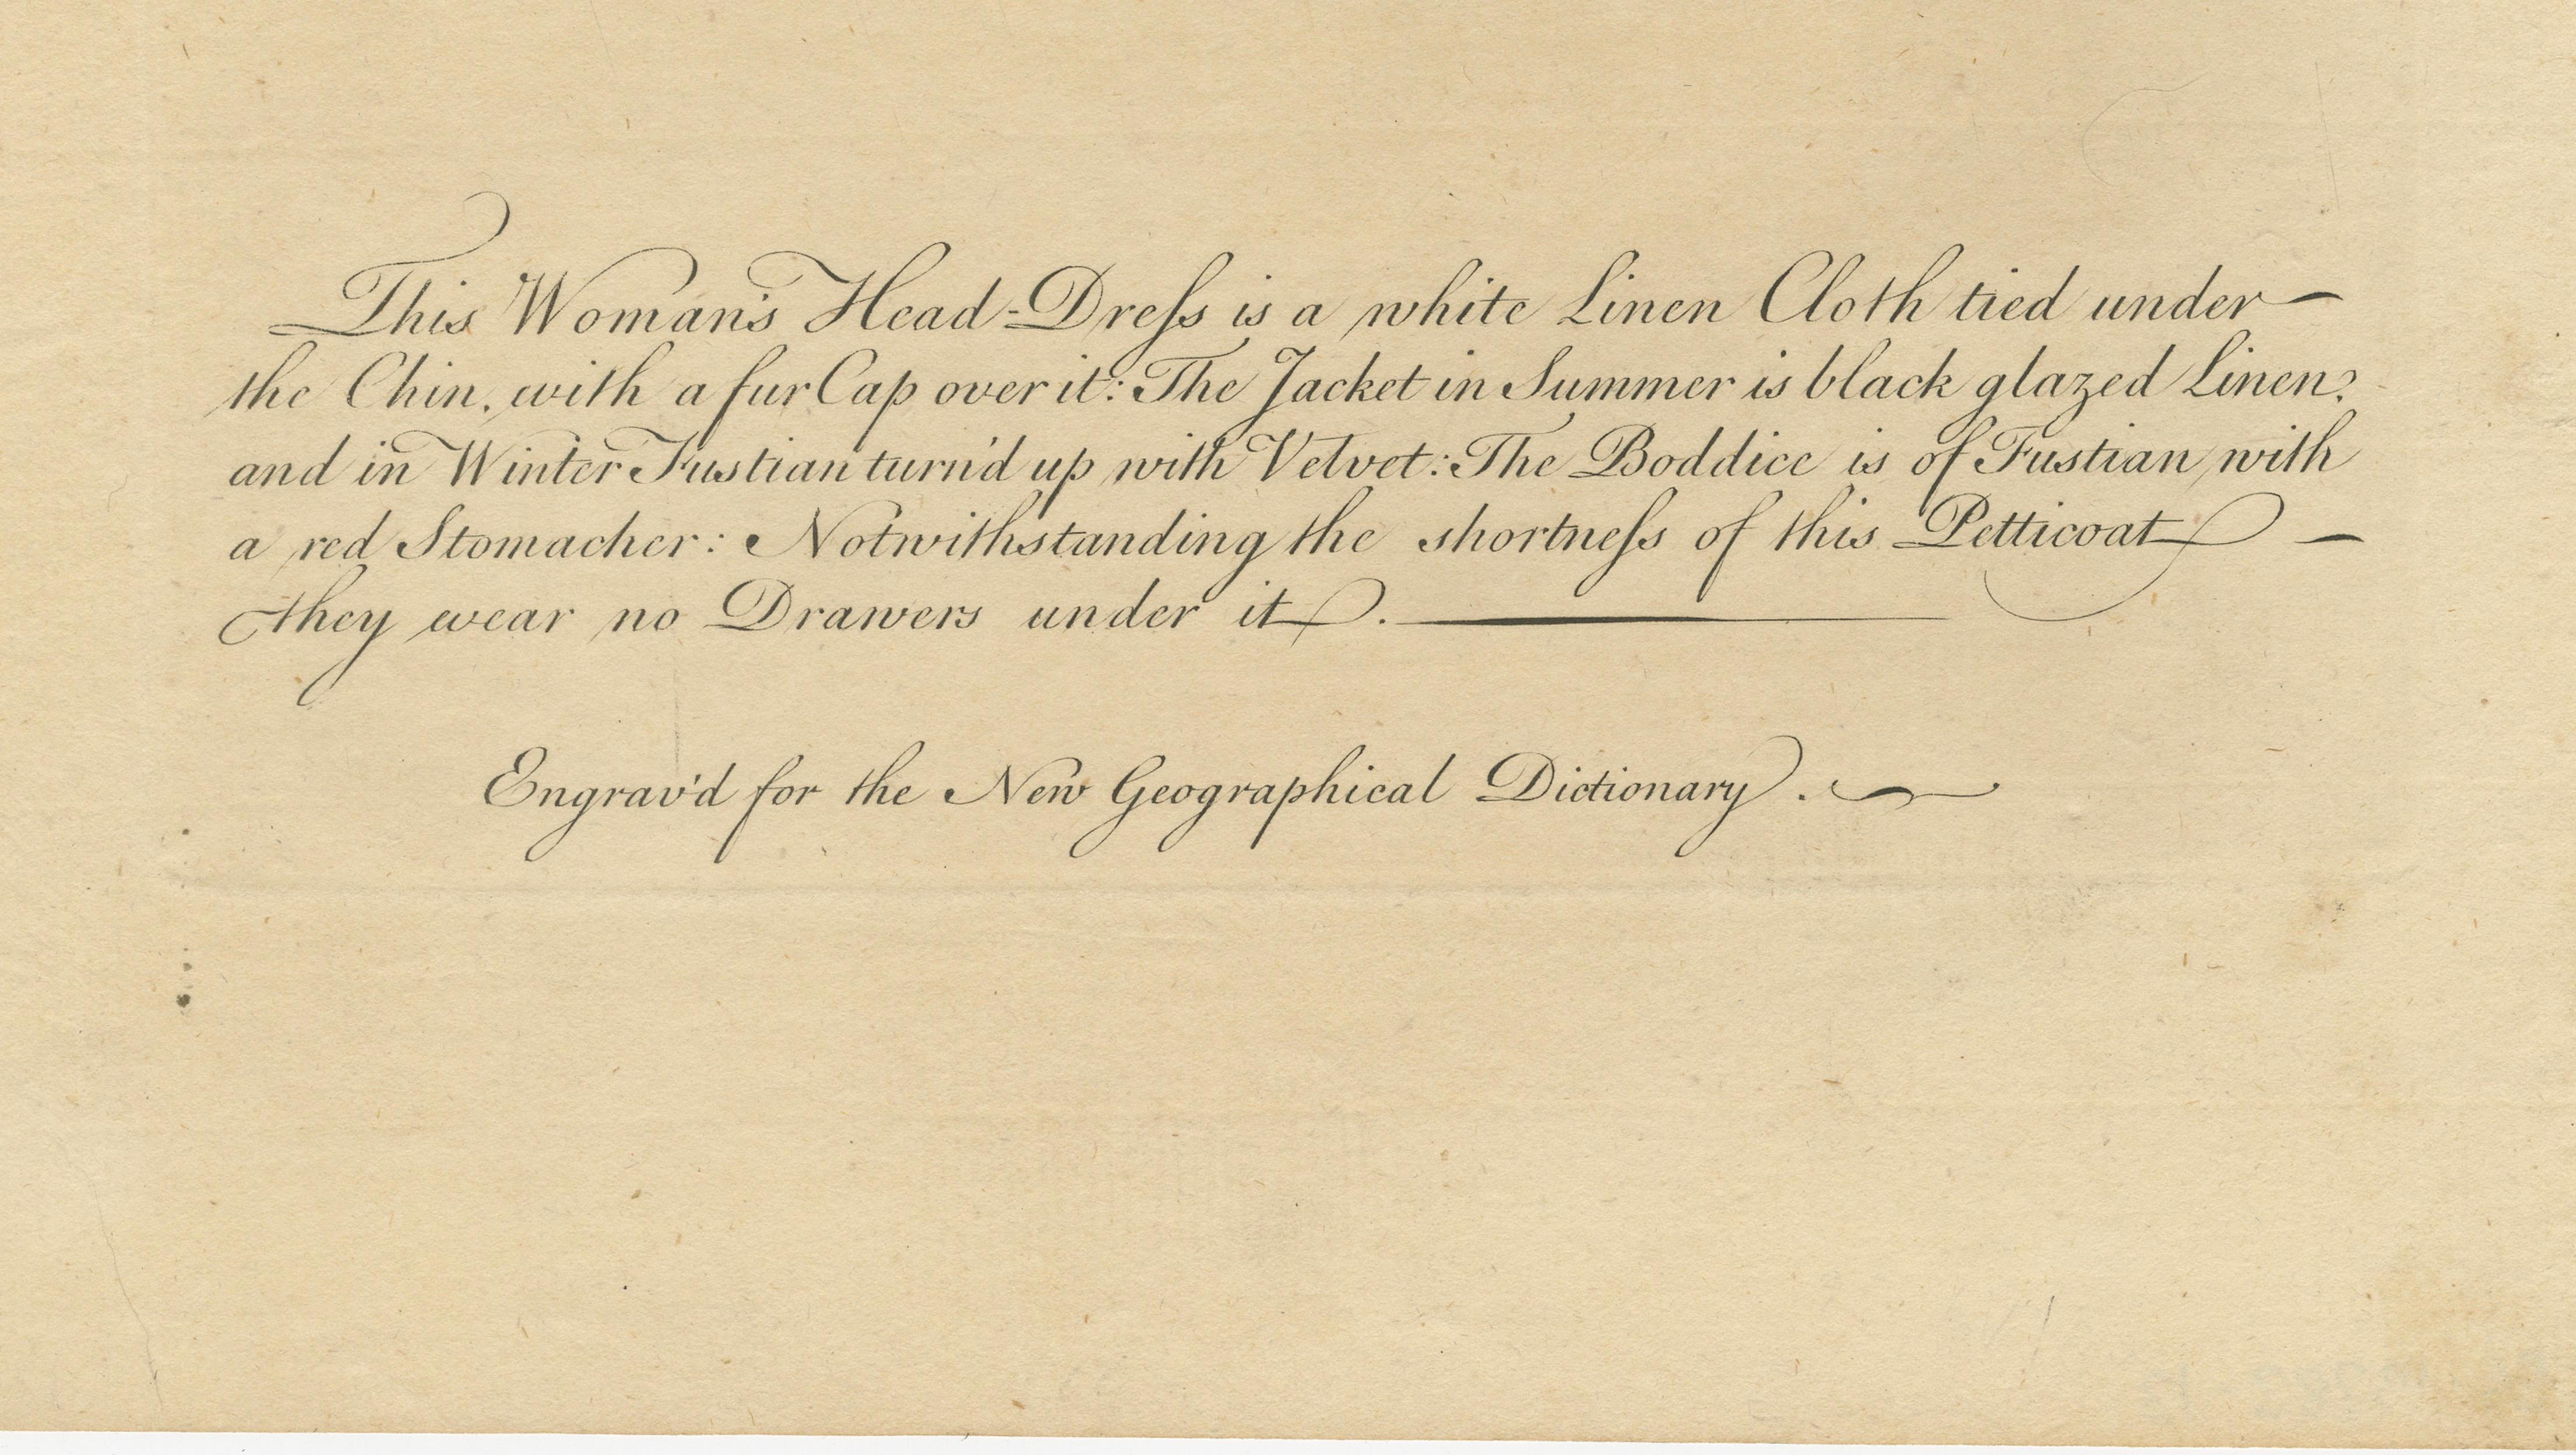 This Woman's Head-Dreſs is a white Linen Cloth tied under —
the Chin, with a fur Cap over it: The Jacket in Summer is black glazed Linen,
and in Winter Fustian turn'd up with Velvet: The Boddice is of Fustian with
a red Stomacher: Notwithstanding the shortneſs of this Petticoat —
they wear no Drawers under it.
Engrav'd for the New Geographical Dictionary.